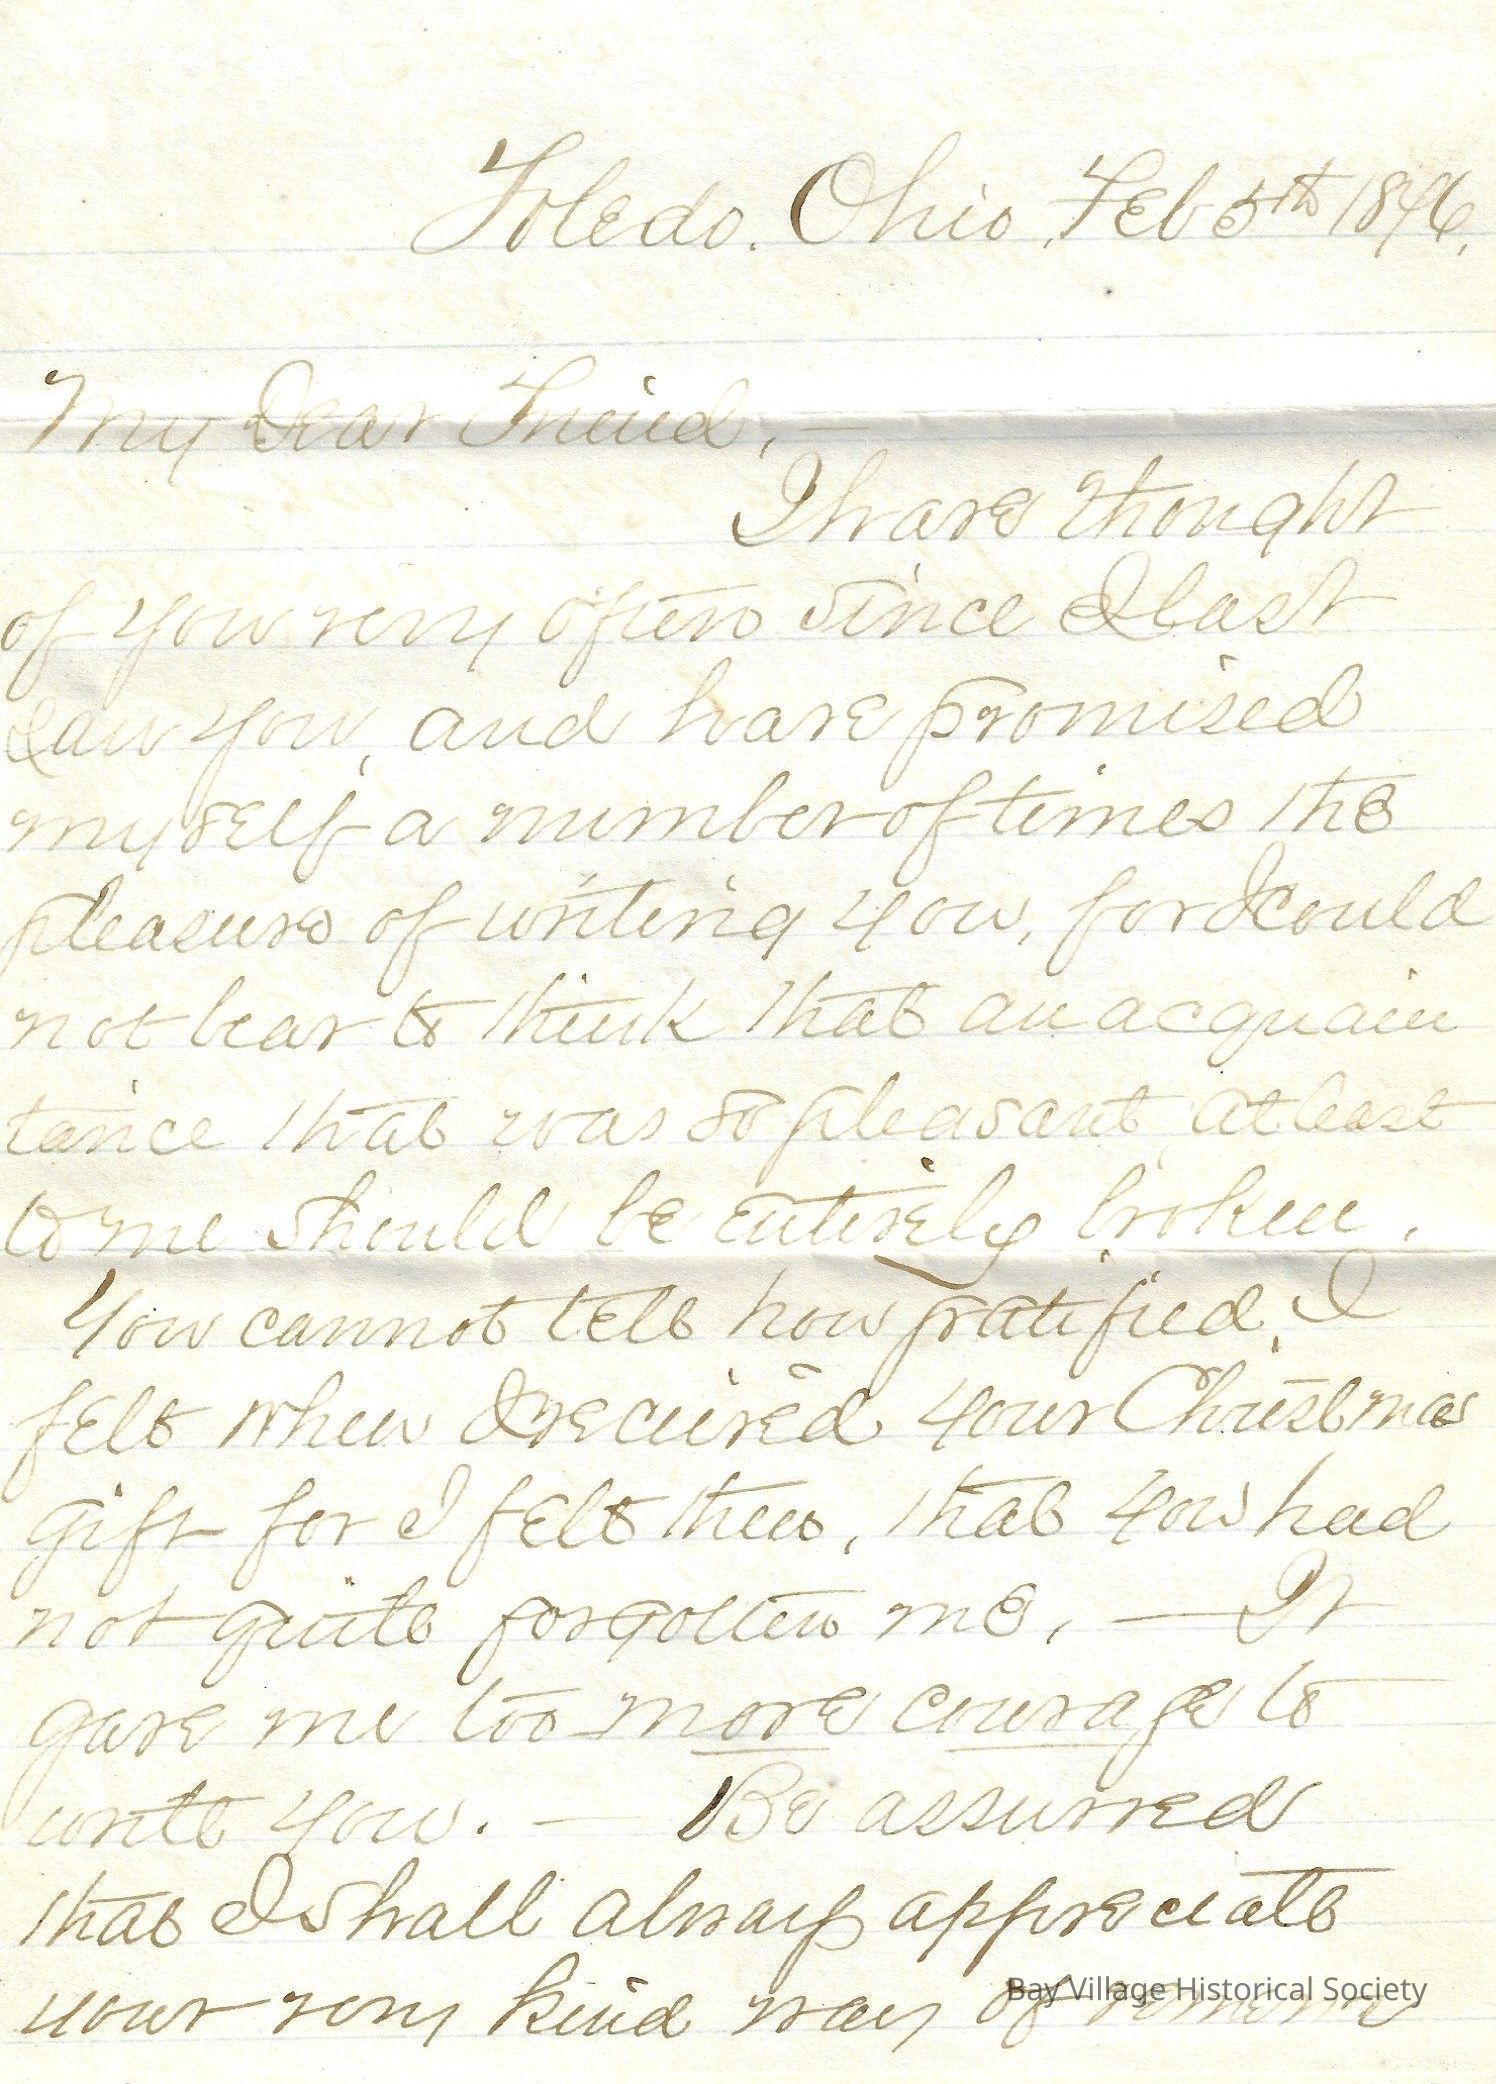 Toledo. Ohio, Feb 5th 1876.
My Dear Friend, —
I have thought
of you very often since I last
saw you, and have promised
myself a number of times the
pleasure of writing you, for I could
not bear to think that an acquain
tance that was so pleasant, at least
to me should be entirely broken.
You cannot tell how gratified, I
felt when I received your Christmas
gift for I felt then, that you had
not quite forgotten me, — It
gave me too more courage to
write you. — Be assured
that I shall always appreciate
your very kind way of remem
Bay Village Historical Society